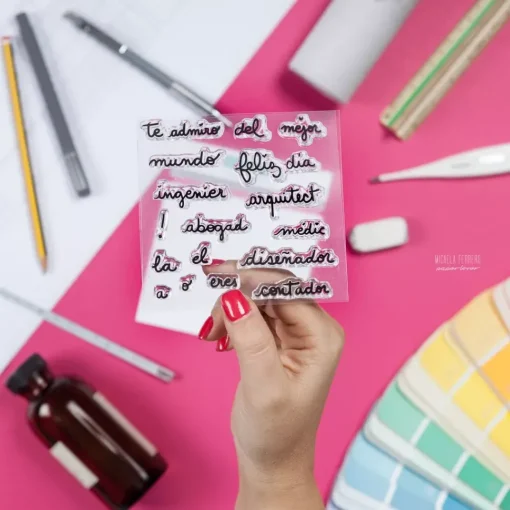 te admiro del mejor
mundo feliz día
ingenier arquitect
! abogad médic
la el diseñador
a o eres contador
MICHELA FERRERO